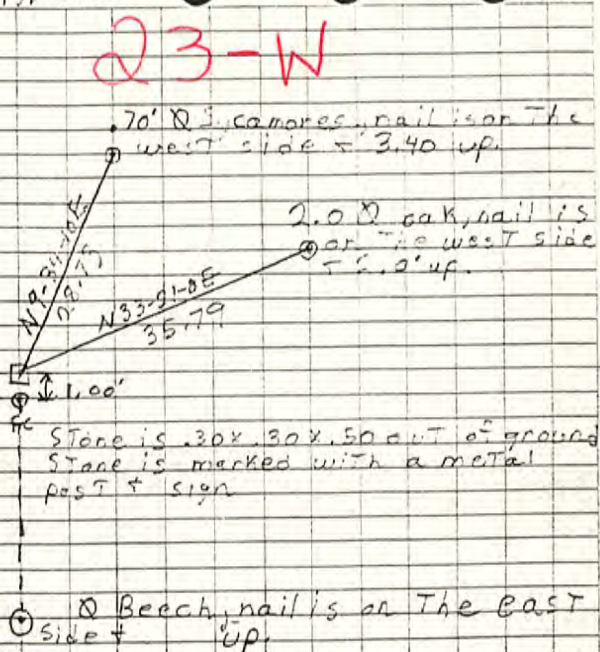 23-W
.70' Ø Sycamores, nail is on The
west side + 3.40 up.
2.0 Ø oak, nail is
on The west side
up.
28.75
35.79
1.00'
STone is .30 x .30 x .50 ouT of ground
STone is marked with a meTal
posT + sign
Ø Beech, nail is on The east
side + up.